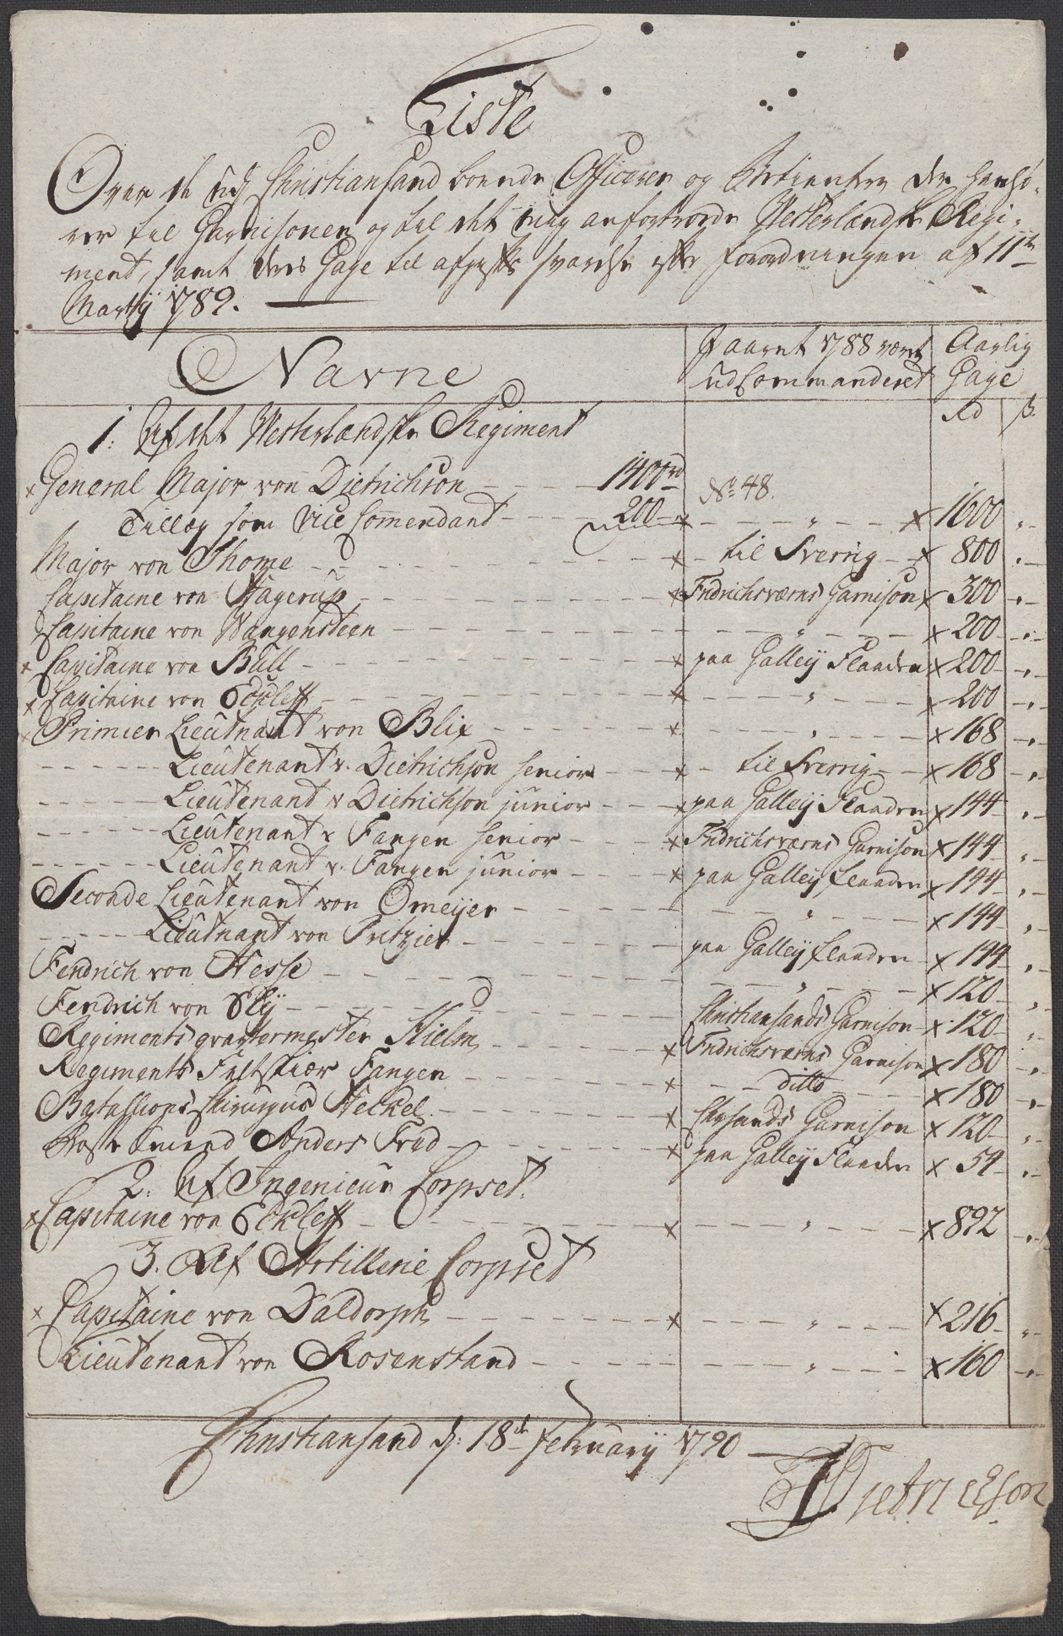 Liste
Over de udj Christiansand boende Officerer og Betienter der henhø-
rer til Garnisonen og til det mig anfortroede Westerlandske Regi-
ment, samt deres Gage til afgifts svarelse efter forordningen af 11te
Martij 1789.
Navne Jaaret 1788 været Aarlig
udCommanderet Gage
Rd ß
1: Af det Westerlandske Regiment
General Major von Dietrichson 1400 rd No 48.
Tillæg som Vice Comendant 200 " 1600 "
Major von Thome til Sverrig 800
Capitaine von Hagerup Fridrichsværns Garnison 300
Capitaine von Wangensteen " 200
Capitaine von Bull paa Galleij Flaaden 200
Capitaine von Eckleff " 200
Primier Lieutnant von Blix " 168
Lieutenant v. Dietrichson senior til Sverrig 168
Lieutenant v Dietrichson junior paa Galleij Flaaden 144
Lieutenant v Fangen senior Fridrichsværns Garnison 144
Lieutenant v. Fangen junior paa Galleij flaaden 144
Seconde Lieutenant von Omeijer " 144
Lieutnant von Pritzier paa Galleij flaaden 144
Fendrich von Hesse " 120
Fendrich von Skÿ Christiansands Garnison 120
Regiments qvartermester Hielm Fridrichsværns Garnison 180
Regiments Feltskiær Fangen ditto 180
Bataillions Chirurgus Heckel Chrsands Garnison 120
Anders Fred paa Galleij Flaaden 54
2. Af Ingenieur Corpset.
Capitaine von Eckleff " 892
3. Af Artillerie Corpset
Capitaine von Daldorph " 216
Lieutenant von Rosenstand " 160
Christiansand d: 18de Februarij 1790
Dietrichson